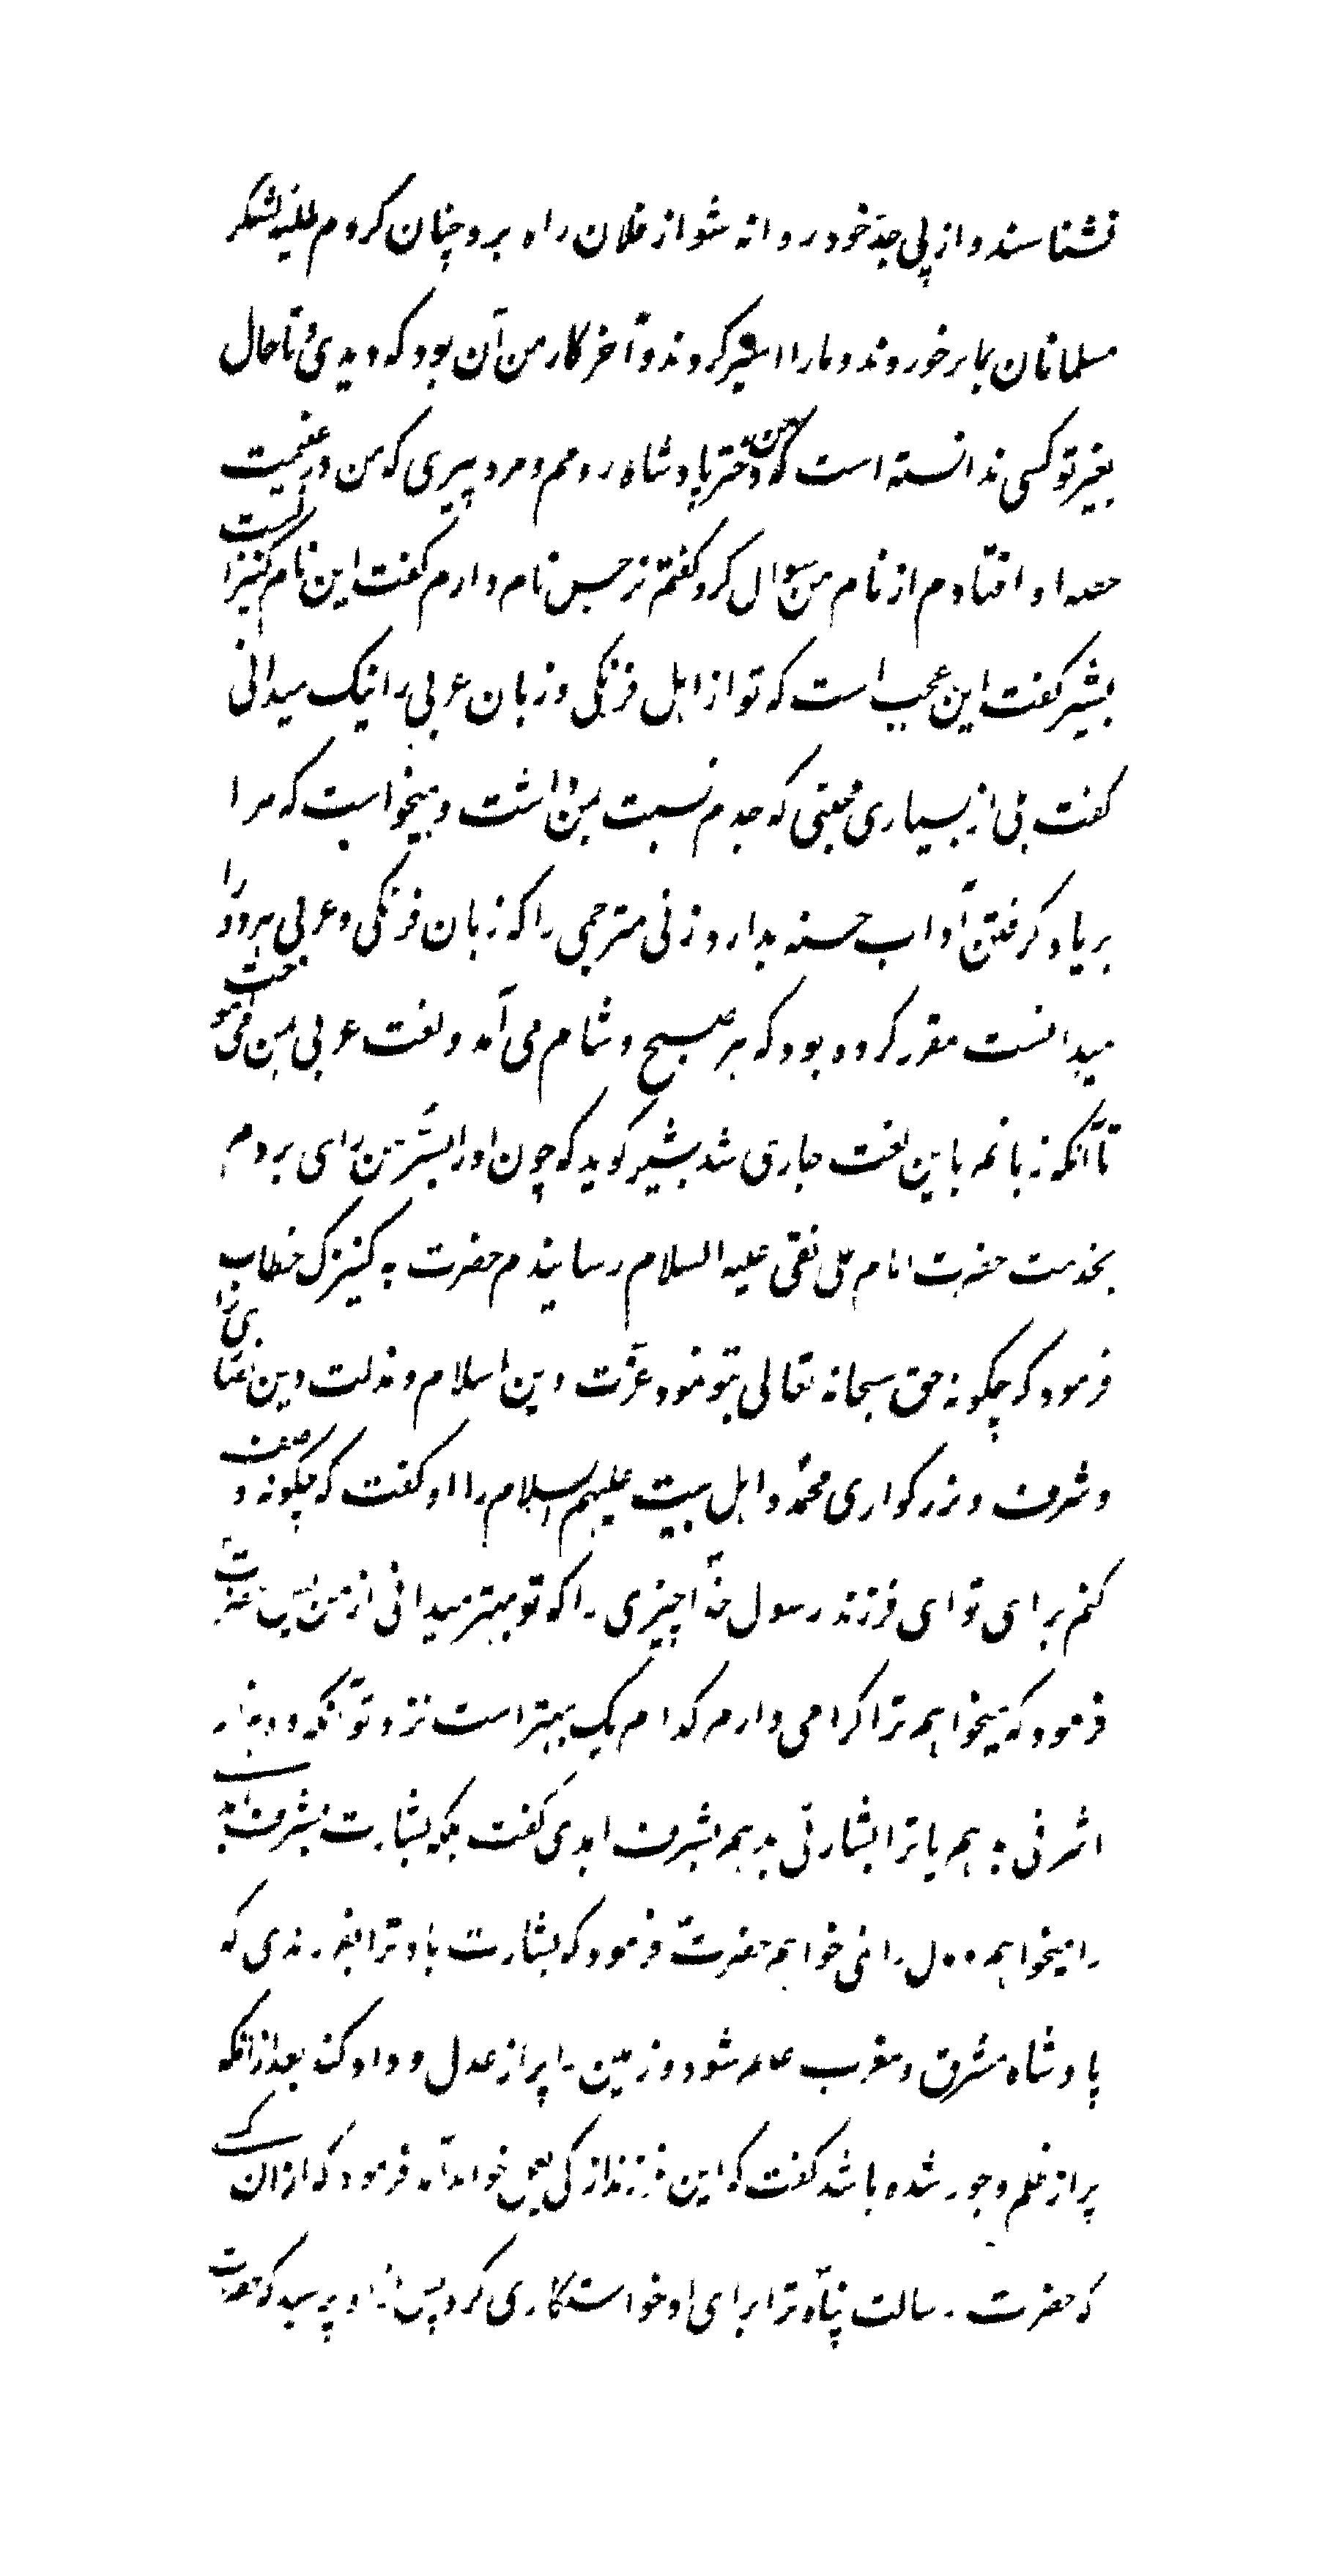 نشناسند و از پی جد خود روانه شو از فلان راه برو چنان کردم طلیهٔ لشکر
مسلمانان بما برخوردند و ما را اسیر کردند و آخر کار من آن بود که دیدی و تا حال
بغیر تو کسی ندانسته است که من دختر پادشاه رومم و مرد پیری که من در غنیمت
حصه او افتادم از نام من سؤال کرد گفتم نرجس نام دارم گفت این نام کنیزانست
بشیر گفت این عجیب است که تو از اهل فرنگی و زبان عربی را نیک میدانی
گفت بلی از بسیاری محبتی که جدم نسبت بمن داشت و میخواست که مرا
بر یاد گرفتن آداب حسنه بدارد زنی مترجمی را که زبان فرنگی و عربی هر دو را
میدانست مقرر کرده بود که هر صبح و شام می آمد و لغت عربی بمن می آموخت
تا آنکه زبانم باین لغت جاری شد بشیر گوید که چون او را بسُرّ من رأی بردم
بخدمت حضرت امام علی نقی علیه السلام رسانیدم حضرت به کنیزک خطاب
فرمود که چگونه حق سبحانه تعالی بتو نمود عزّت دین اسلام و مذلت دین نصاری را
و شرف و بزرگواری محمّد و اهل بیت علیهم السلام را او گفت که چگونه وصف
کنم برای تو ای فرزند رسول خدا چیزی را که تو بهتر میدانی از من پس حضرت
فرمود که میخواهم ترا گرامی دارم کدام یک بهتر است نزد تو آنکه ده هزار
اشرفی بدهم یا ترا بشارتی بدهم بشرف ابدی گفت بلکه بشارت بشرف ابدی
را میخواهم و مال را نمی خواهم حضرت فرمود که بشارت باد ترا بفرزندی که
پادشاه مشرق و مغرب عالم شود و زمین را پر از عدل و داد کند بعد از آنکه
پر از ظلم و جور شده باشد گفت که این فرزند از کی بعمل خواهد آمد فرمود که از آن کسی
که حضرت رسالت پناه ترا برای او خواستگاری کرد پس از او پرسید که حضرت